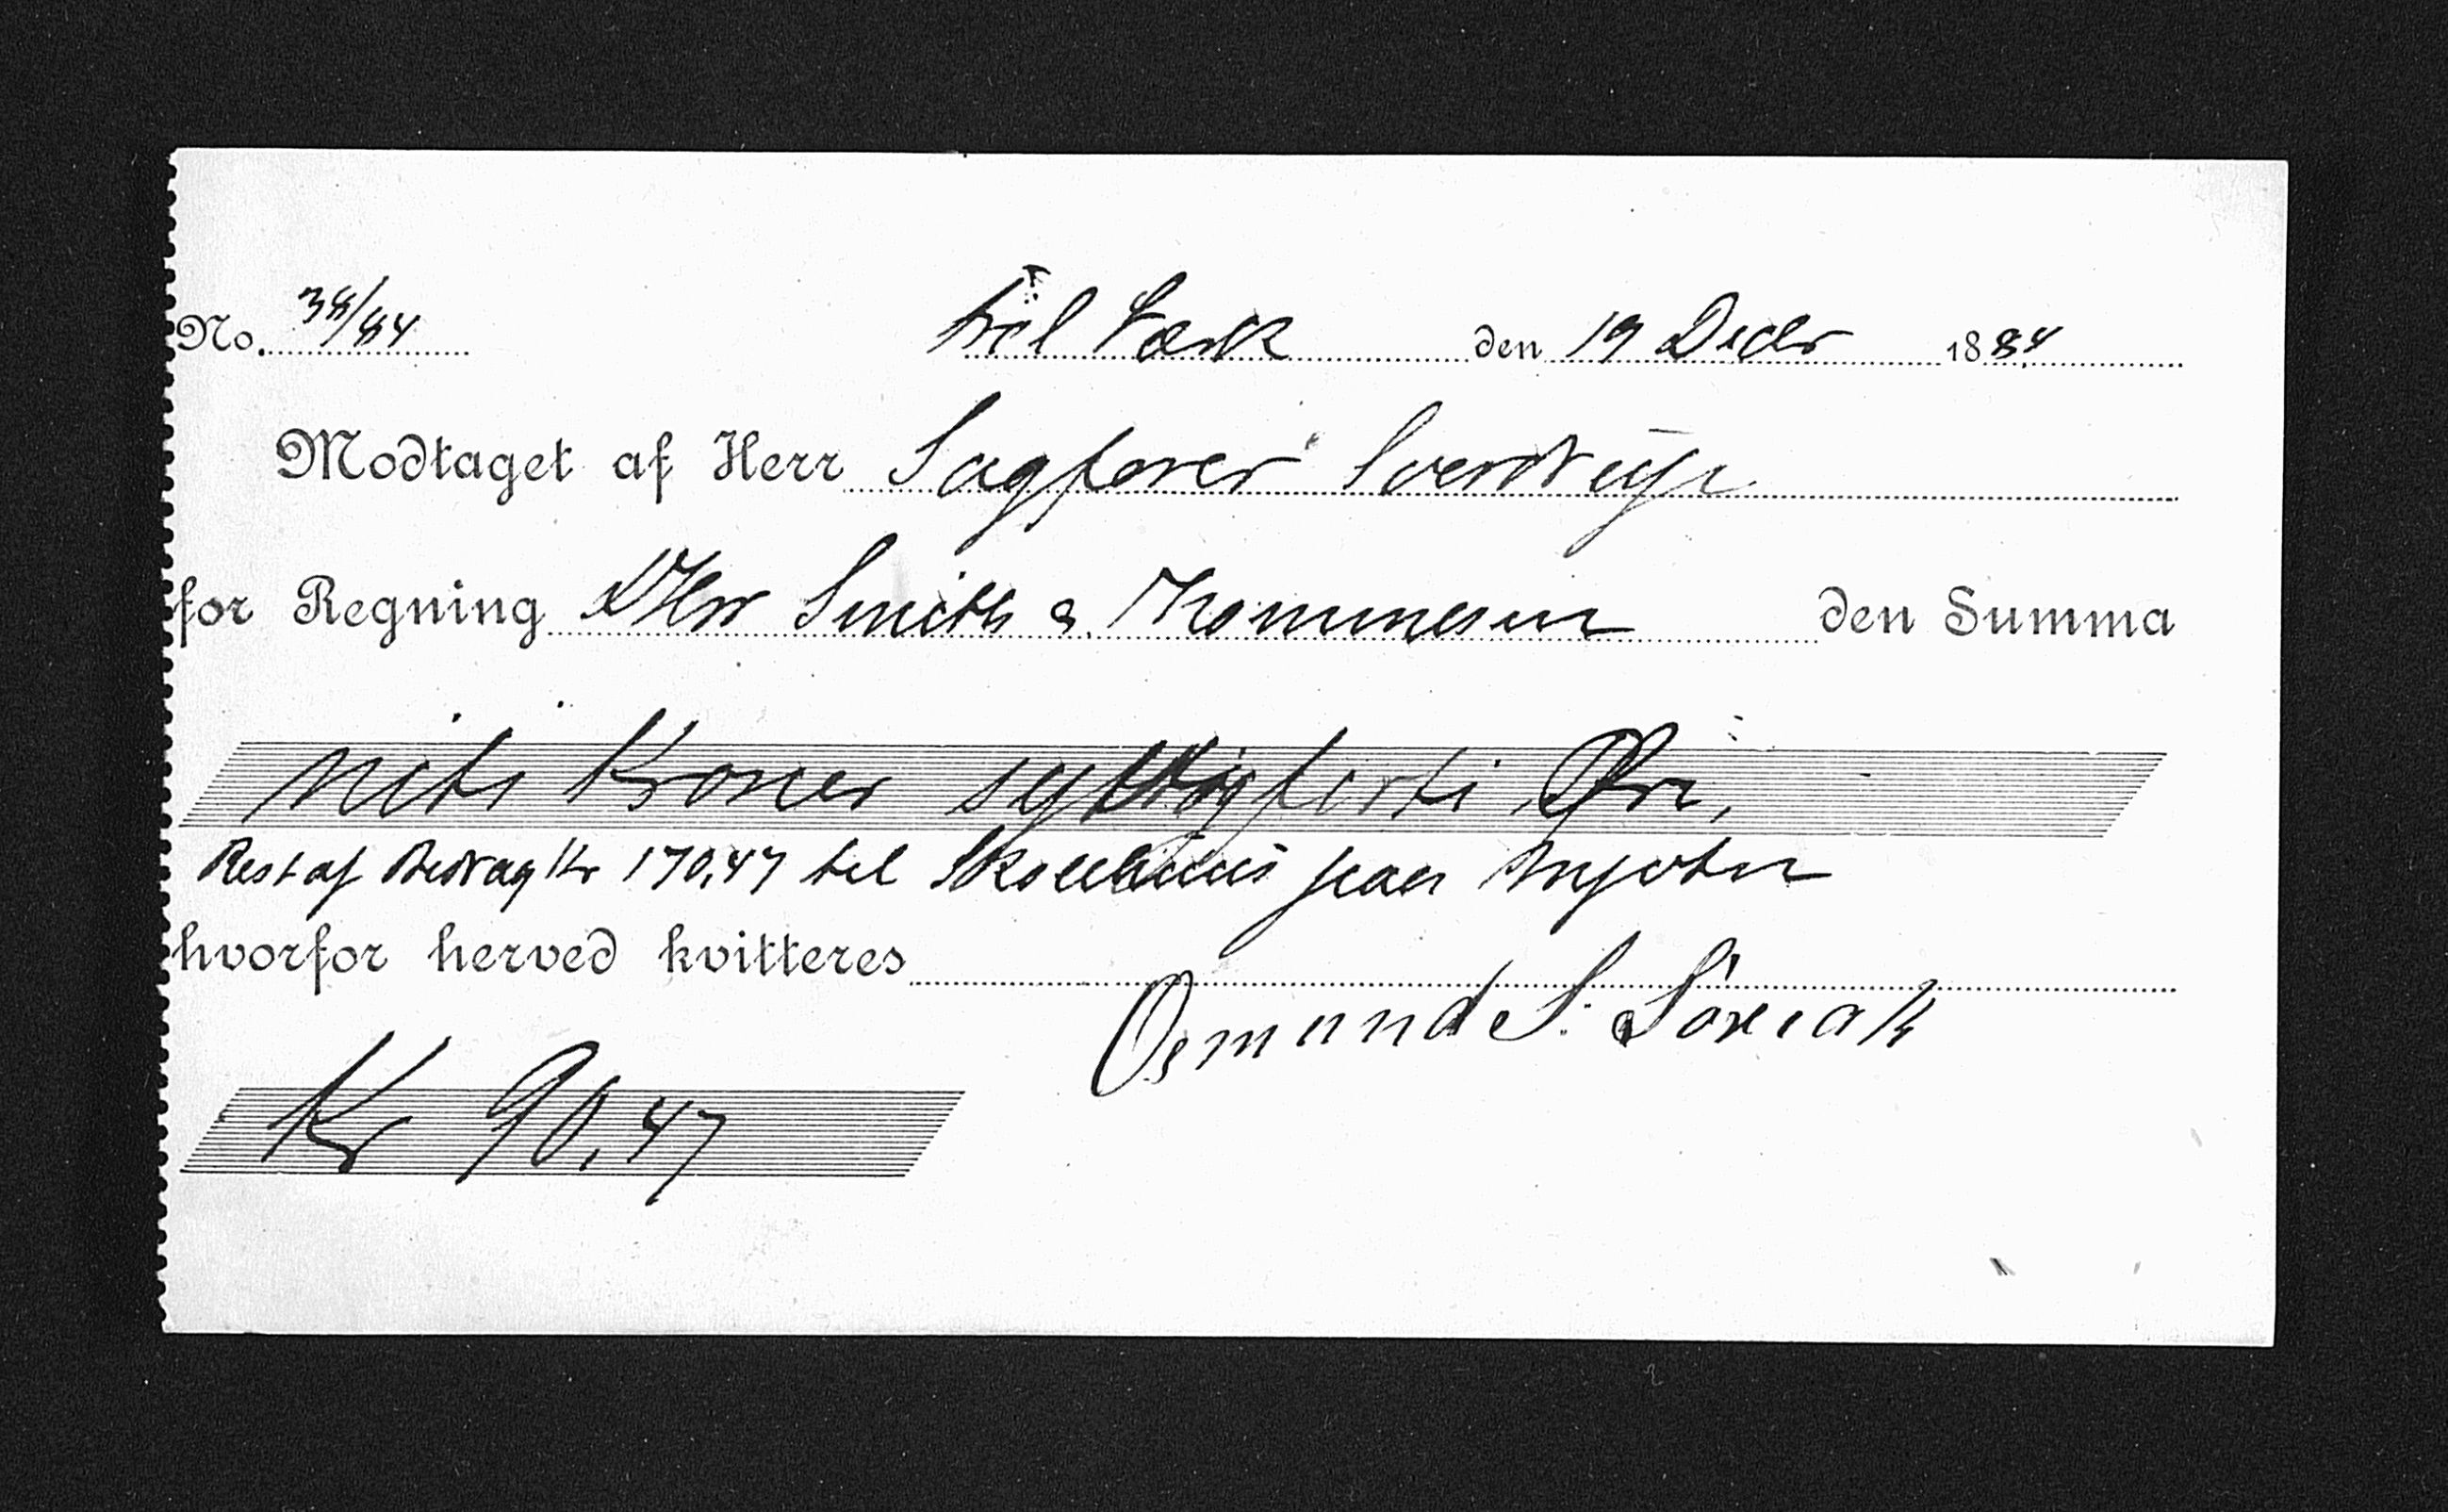 No. 38/84 den 19 Decbr 1884
Modtaget af Herr Sagfører Sverdrup
for Regning DHrr Smith & Thommesen den Summa
niti Kroner syv og førti Øre,
Rest af Bidrag Kr 170,47 til Skolehus paa
hvorfor herved kvitteres
Osmund S.
Kr 90,47